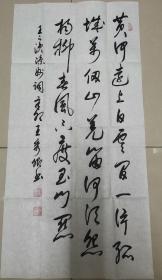 黄河远上白云间一片孤
城万仞山羌笛何须怨
杨柳春风不度玉门关
王之涣凉州词